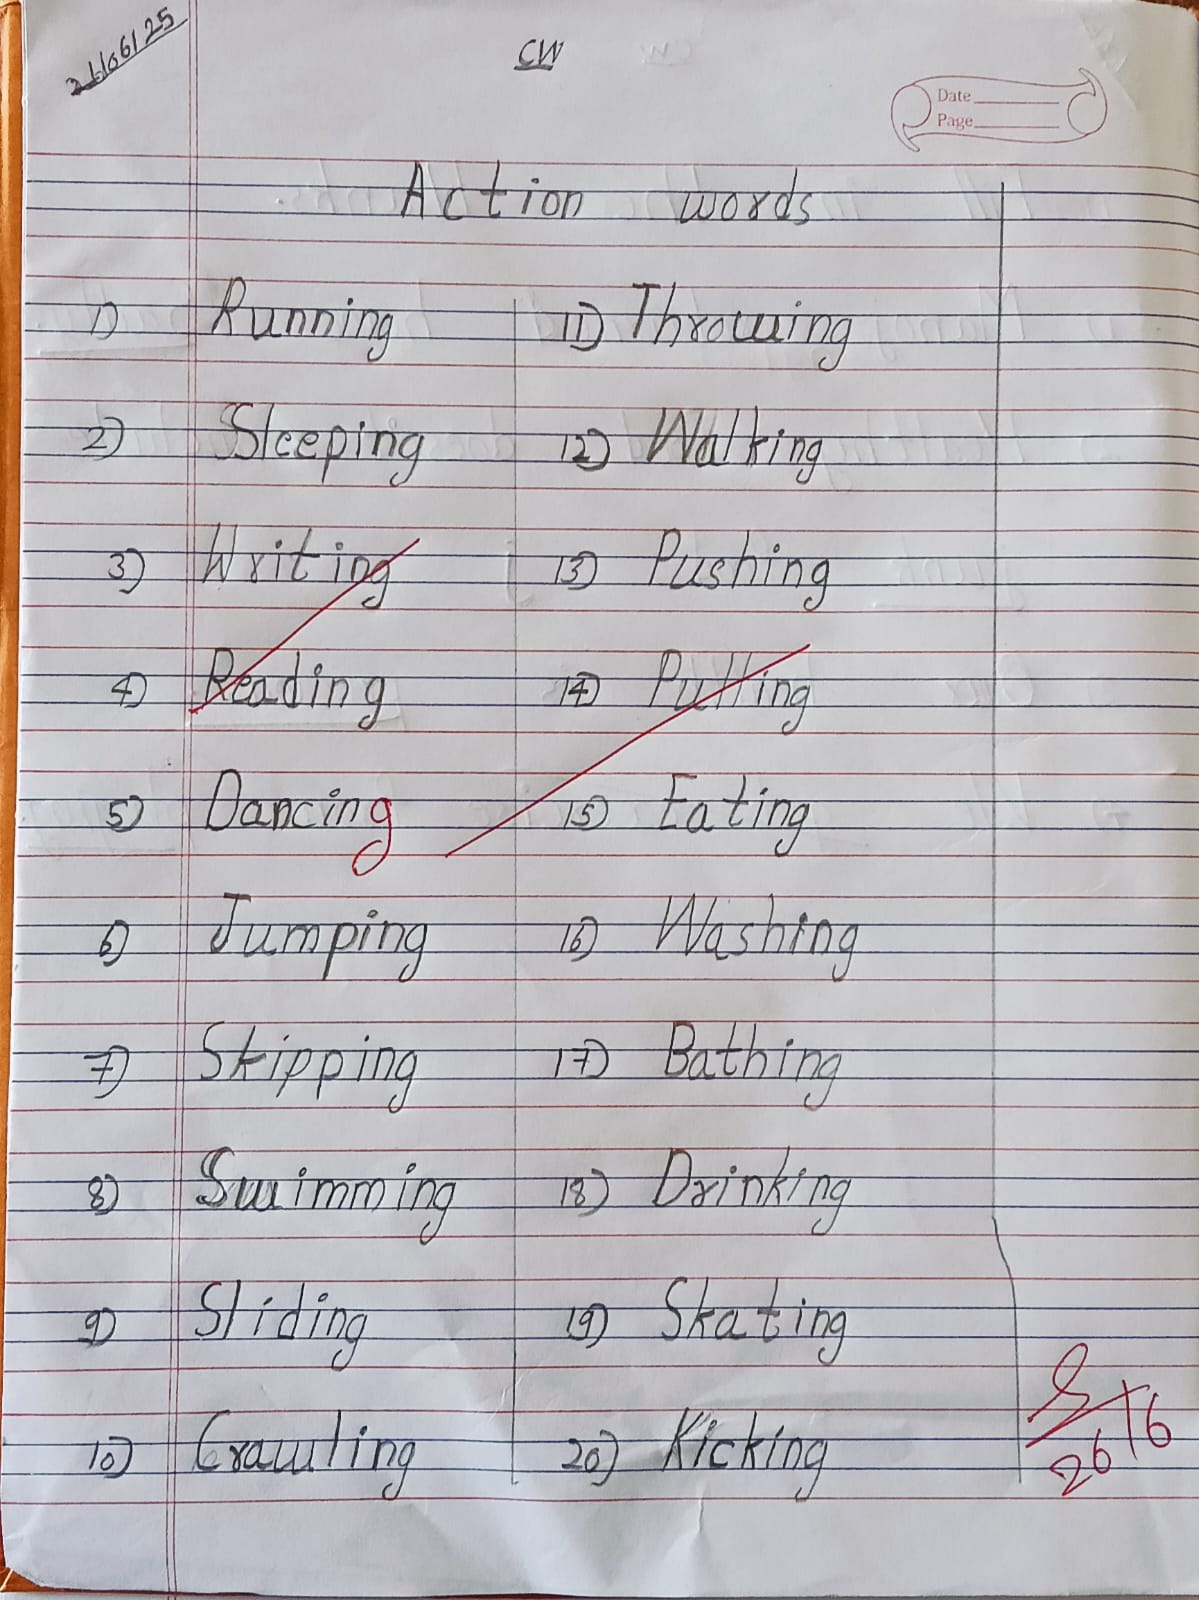 26/06/25
CW
Date
Page
Action words
1) Running
2) Sleeping
3) Writing
4) Reading
5) Dancing
6) Jumping
7) Skipping
8) Swimming
9) Sliding
10) Crawling
11) Throwing
12) Walking
13) Pushing
14) Pulling
15) Eating
16) Washing
17) Bathing
18) Drinking
19) Skating
20) Kicking
26/6